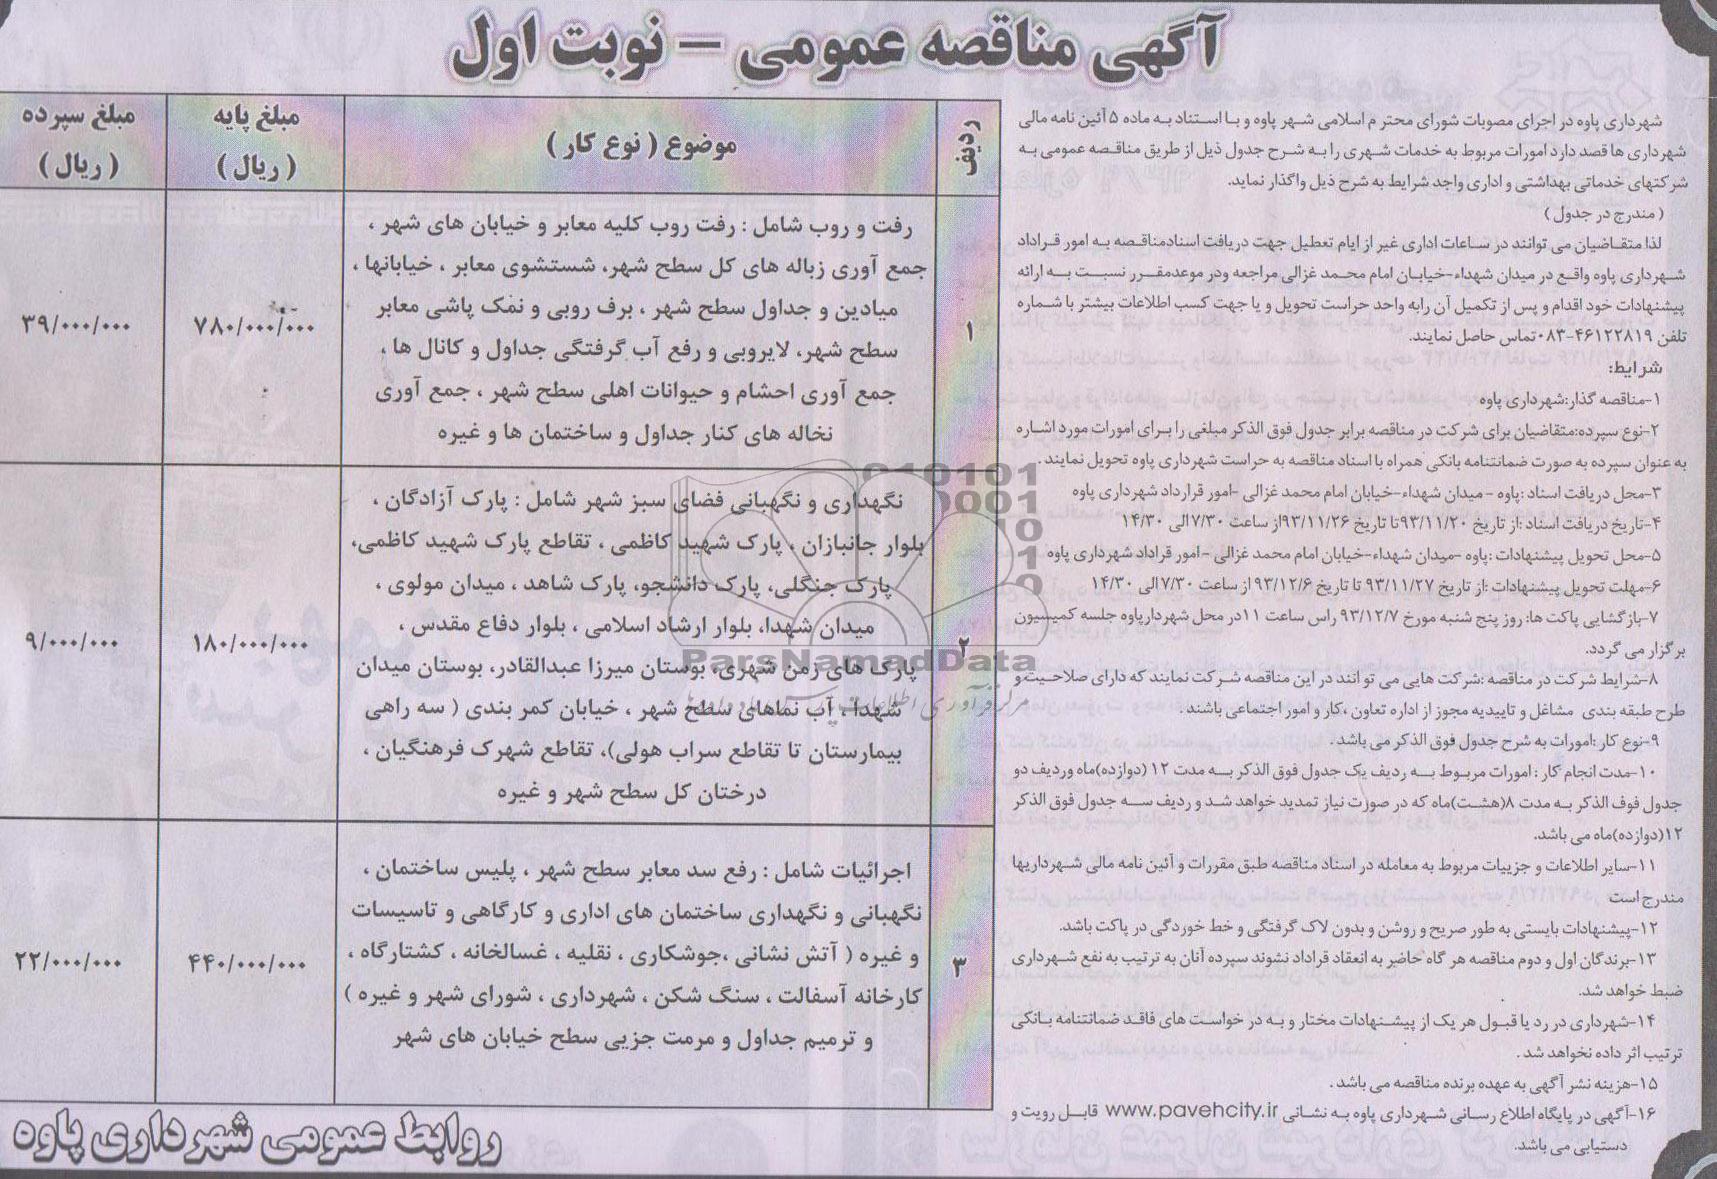 آگهی مناقصه عمومی – نوبت اول
شهرداری پاوه در اجرای مصوبات شورای محترم اسلامی شهر پاوه و با استناد به ماده ۵ آئین نامه مالی
شهرداری ها قصد دارد امورات مربوط به خدمات شهری را به شرح جدول ذیل از طریق مناقصه عمومی به
شرکتهای خدماتی بهداشتی و اداری واجد شرایط به شرح ذیل واگذار نماید.
( مندرج در جدول )
لذا متقاضیان می توانند در ساعات اداری غیر از ایام تعطیل جهت دریافت اسنادمناقصه به امور قراداد
شهرداری پاوه واقع در میدان شهداء-خیابان امام محمد غزالی مراجعه ودر موعدمقرر نسبت به ارائه
پیشنهادات خود اقدام و پس از تکمیل آن رابه واحد حراست تحویل و یا جهت کسب اطلاعات بیشتر با شماره
تلفن ۴۶۱۲۲۸۱۹-۰۸۳تماس حاصل نمایند.
شرایط:
۱-مناقصه گذار:شهرداری پاوه
۲-نوع سپرده:متقاضیان برای شرکت در مناقصه برابر جدول فوق الذکر مبلغی را برای امورات مورد اشاره
به عنوان سپرده به صورت ضمانتنامه بانکی همراه با اسناد مناقصه به حراست شهرداری پاوه تحویل نمایند .
۳-محل دریافت اسناد :پاوه - میدان شهداء-خیابان امام محمد غزالی -امور قرارداد شهرداری پاوه
۴-تاریخ دریافت اسناد :از تاریخ ۹۳/۱۱/۲۰تا تاریخ ۹۳/۱۱/۲۶از ساعت ۷/۳۰الی ۱۴/۳۰
۵-محل تحویل پیشنهادات :پاوه -میدان شهداء-خیابان امام محمد غزالی -امور قراداد شهرداری پاوه
۶-مهلت تحویل پیشنهادات :از تاریخ ۹۳/۱۱/۲۷ تا تاریخ ۹۳/۱۲/۶ از ساعت ۷/۳۰الی ۱۴/۳۰
۷-بازگشایی پاکت ها: روز پنج شنبه مورخ ۹۳/۱۲/۷ راس ساعت ۱۱در محل شهردارپاوه جلسه کمیسیون
برگزار می گردد.
۸-شرایط شرکت در مناقصه :شرکت هایی می توانند در این مناقصه شرکت نمایند که دارای صلاحیت و
طرح طبقه بندی مشاغل و تاییدیه مجوز از اداره تعاون ،کار و امور اجتماعی باشند .
۹-نوع کار :امورات به شرح جدول فوق الذکر می باشد .
۱۰-مدت انجام کار : امورات مربوط به ردیف یک جدول فوق الذکر به مدت ۱۲ (دوازده)ماه وردیف دو
جدول فوف الذکر به مدت ۸(هشت)ماه که در صورت نیاز تمدید خواهد شد و ردیف سه جدول فوق الذکر
۱۲(دوازده)ماه می باشد.
۱۱-سایر اطلاعات و جزییات مربوط به معامله در اسناد مناقصه طبق مقررات و آئین نامه مالی شهرداریها
مندرج است
۱۲-پیشنهادات بایستی به طور صریح و روشن و بدون لاک گرفتگی و خط خوردگی در پاکت باشد.
۱۳-برندگان اول و دوم مناقصه هر گاه حاضر به انعقاد قراداد نشوند سپرده آنان به ترتیب به نفع شهرداری
ضبط خواهد شد.
۱۴-شهرداری در رد یا قبول هر یک از پیشنهادات مختار و به در خواست های فاقد ضمانتنامه بانکی
ترتیب اثر داده نخواهد شد .
۱۵-هزینه نشر آگهی به عهده برنده مناقصه می باشد .
۱۶-آگهی در پایگاه اطلاع رسانی شهرداری پاوه به نشانی www.pavehcity.ir قابل رویت و
دستیابی می باشد.
ردیف
موضوع ( نوع کار )
مبلغ پایه
( ریال )
مبلغ سپرده
( ریال )
۱
رفت و روب شامل : رفت روب کلیه معابر و خیابان های شهر ،
جمع آوری زباله های کل سطح شهر، شستشوی معابر ، خیابانها ،
میادین و جداول سطح شهر ، برف روبی و نمک پاشی معابر
سطح شهر، لایروبی و رفع آب گرفتگی جداول و کانال ها ،
جمع آوری احشام و حیوانات اهلی سطح شهر ، جمع آوری
نخاله های کنار جداول و ساختمان ها و غیره
۷۸۰/۰۰۰/۰۰۰
۳۹/۰۰۰/۰۰۰
۲
نگهداری و نگهبانی فضای سبز شهر شامل : پارک آزادگان ،
بلوار جانبازان ، پارک شهید کاظمی ، تقاطع پارک شهید کاظمی،
پارک جنگلی، پارک دانشجو، پارک شاهد ، میدان مولوی ،
میدان شهدا، بلوار ارشاد اسلامی ، بلوار دفاع مقدس ،
پارک های زمن شهری، بوستان میرزا عبدالقادر، بوستان میدان
شهدا ، آب نماهای سطح شهر ، خیابان کمر بندی ( سه راهی
بیمارستان تا تقاطع سراب هولی)، تقاطع شهرک فرهنگیان ،
درختان کل سطح شهر و غیره
۱۸۰/۰۰۰/۰۰۰
۹/۰۰۰/۰۰۰
۳
اجرائیات شامل : رفع سد معابر سطح شهر ، پلیس ساختمان ،
نگهبانی و نگهداری ساختمان های اداری و کارگاهی و تاسیسات
و غیره ( آتش نشانی ،جوشکاری ، نقلیه ، غسالخانه ، کشتارگاه ،
کارخانه آسفالت ، سنگ شکن ، شهرداری ، شورای شهر و غیره )
و ترمیم جداول و مرمت جزیی سطح خیابان های شهر
۴۴۰/۰۰۰/۰۰۰
۲۲/۰۰۰/۰۰۰
روابط عمومی شهرداری پاوه
ParsNamadData